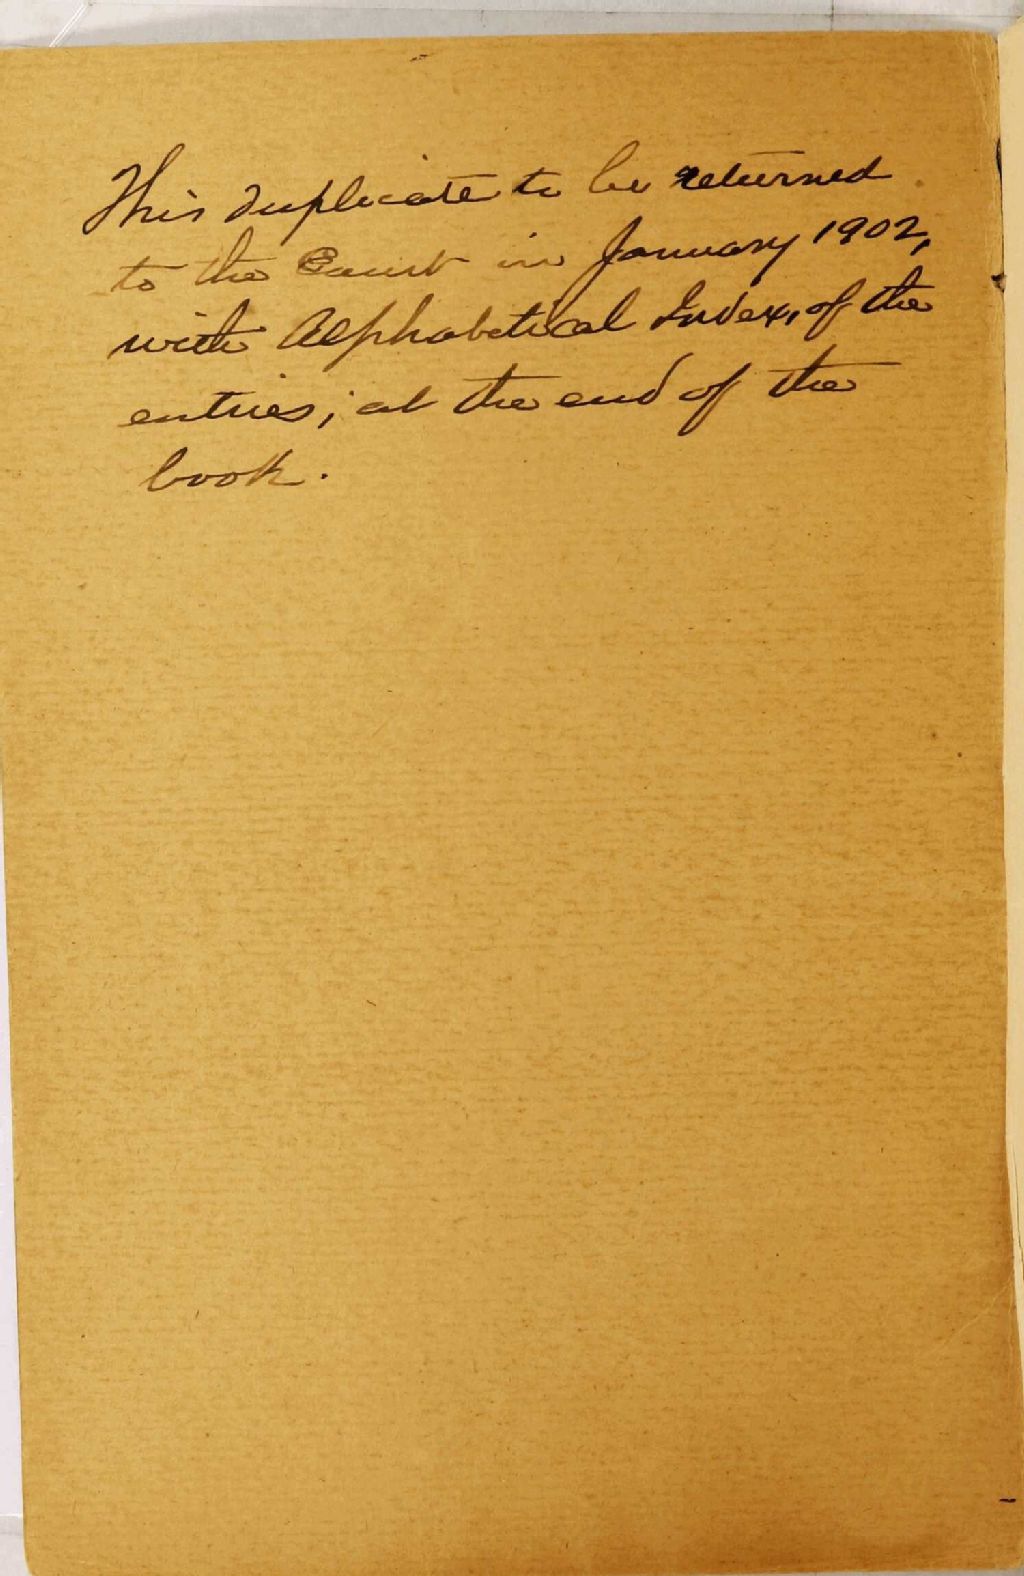 This duplicate to be returned
to the Court in January 1902,
with Alphabetical Index, of the
entries; at the end of the
book.